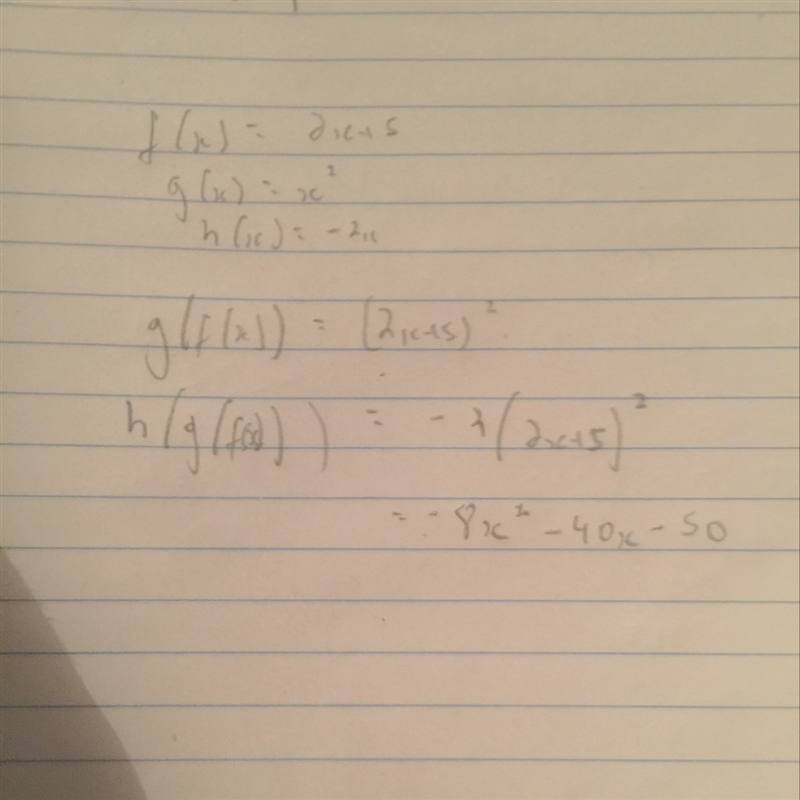 f(x) = 2x+5
g(x) = x²
h(x) = -2x
g(f(x)) = (2x+5)²
h(g(f(x))) = -2(2x+5)²
= -8x² - 40x - 50